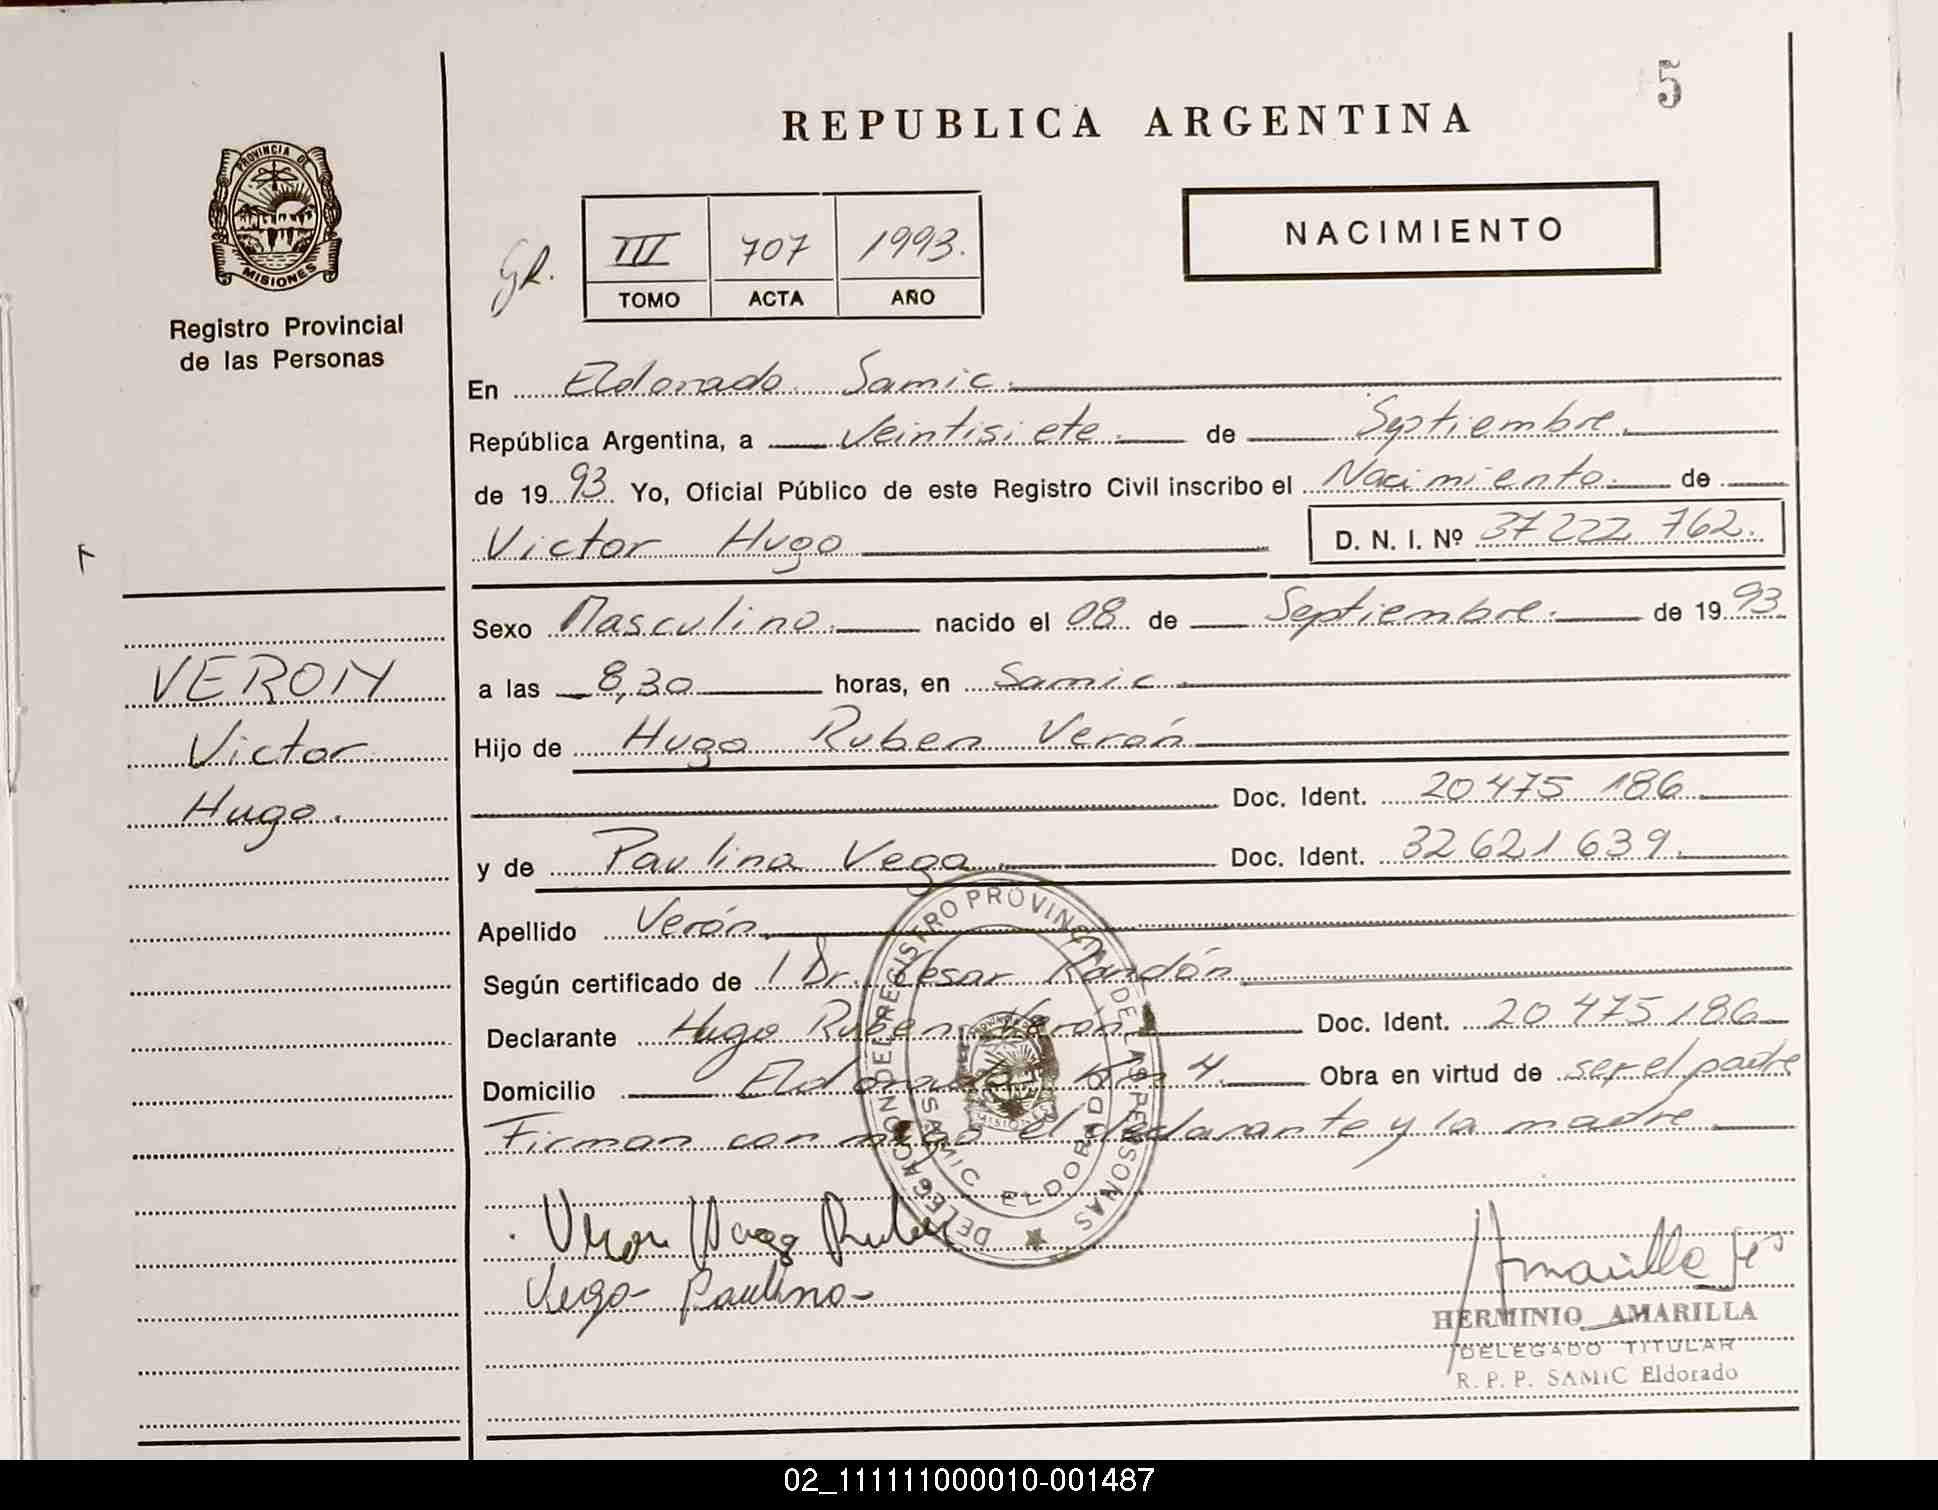 5
REPUBLICA ARGENTINA
PROVINCIA DE
MISIONES
Registro Provincial
de las Personas
NACIMIENTO
III 707 1993.
TOMO ACTA AÑO
En Eldorado Samic.
República Argentina, a Veintisiete. de Septiembre.
de 1993 Yo, Oficial Público de este Registro Civil inscribo el Nacimiento. de
Victor Hugo D. N. I. Nº 37 222 762.
Sexo Masculino. nacido el 08 de Septiembre. de 1993
VERON
Victor
Hugo.
a las 8,30 horas, en Samic.
Hijo de Hugo Ruben Verón
Doc. Ident. 20 475 186
y de Paulina Vega. Doc. Ident. 32 621 639.
Apellido Verón.
Según certificado de 1 Dr. Cesar Randón
Declarante Hugo Ruben Verón Doc. Ident. 20 475 186
Domicilio Eldorado Km 4. Obra en virtud de ser el padre
Firman con migo el declarante y la madre
DELEGACION DEL REGISTRO PROVINCIAL DE LAS PERSONAS
SAMIC ELDORADO
MISIONES
Veron Hugo Ruben
Vega Paulina
Amarilla
HERMINIO AMARILLA
DELEGADO TITULAR
R. P. P. SAMIC Eldorado
02_111111000010-001487